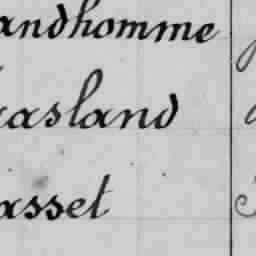 andhomme
asland
asset